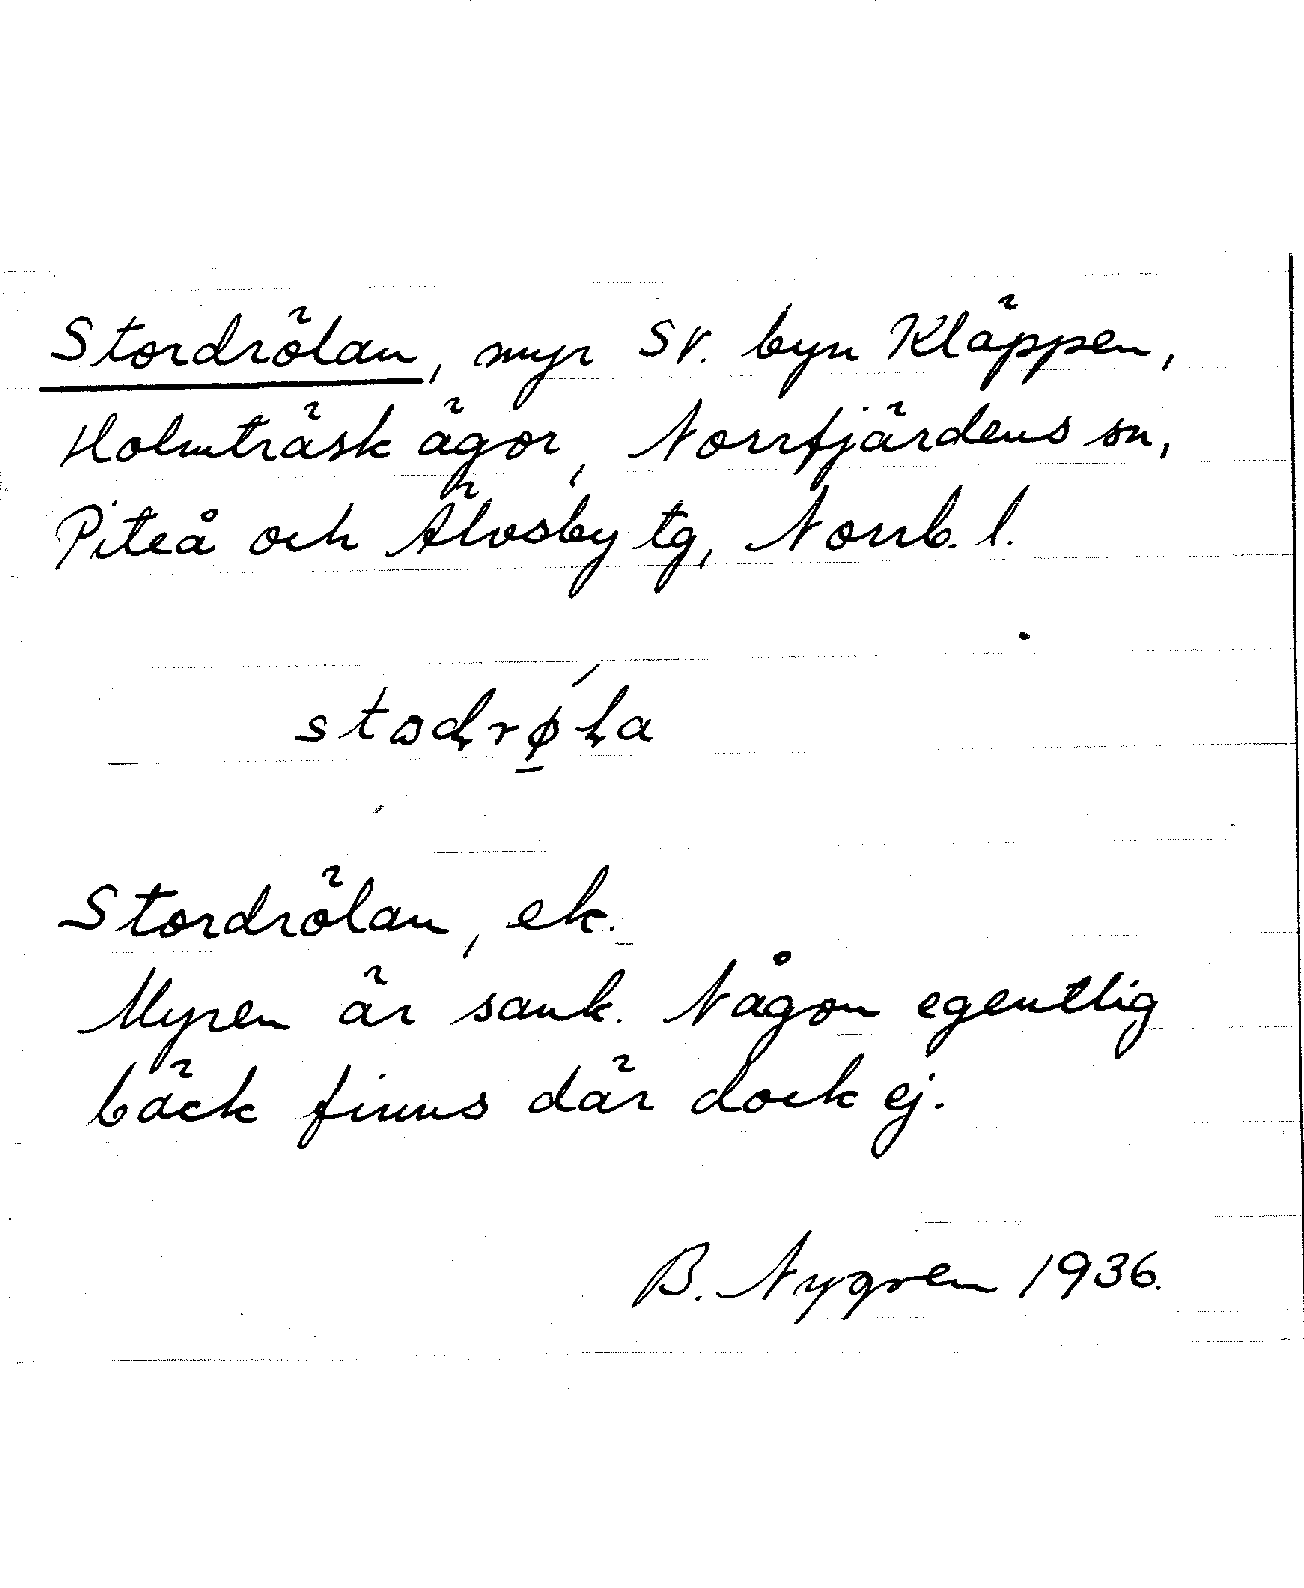 Stordrölan, myr SV. byn Kläppen,
Holmträsk ägor, Norrfjärdens sn,
Piteå och Älvsby tg, Norrb. l.
Stordrölan, ek.
Myren är sank. Någon egentlig
bäck finns där dock ej.
B. Nygren 1936.